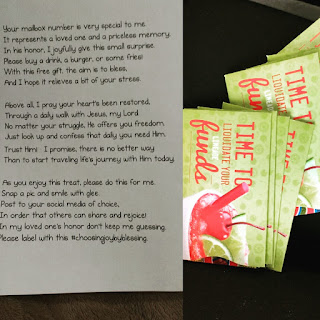 Your mailbox number is very special to me.
It represents a loved one and a priceless memory.
In his honor, I joyfully give this small surprise.
Please buy a drink, a burger, or some fries!
With this free gift, the aim is to bless,
And I hope it relieves a bit of your stress.
Above all, I pray your heart's been restored,
Through a daily walk with Jesus, my Lord
No matter your struggle, He offers you freedom.
Just look up and confess that daily you need Him.
Trust Him! I promise, there is no better way
Than to start traveling life's journey with Him today.
As you enjoy this treat, please do this for me.
Snap a pic and smile with glee.
Post to your social media of choice,
In order that others can share and rejoice!
In my loved one's honor don't keep me guessing,
Please label with this #choosingjoybyblessing.
TIME TO
LIQUIDATE YOUR
funds
TIME TO
LIQUIDATE YOUR
funds